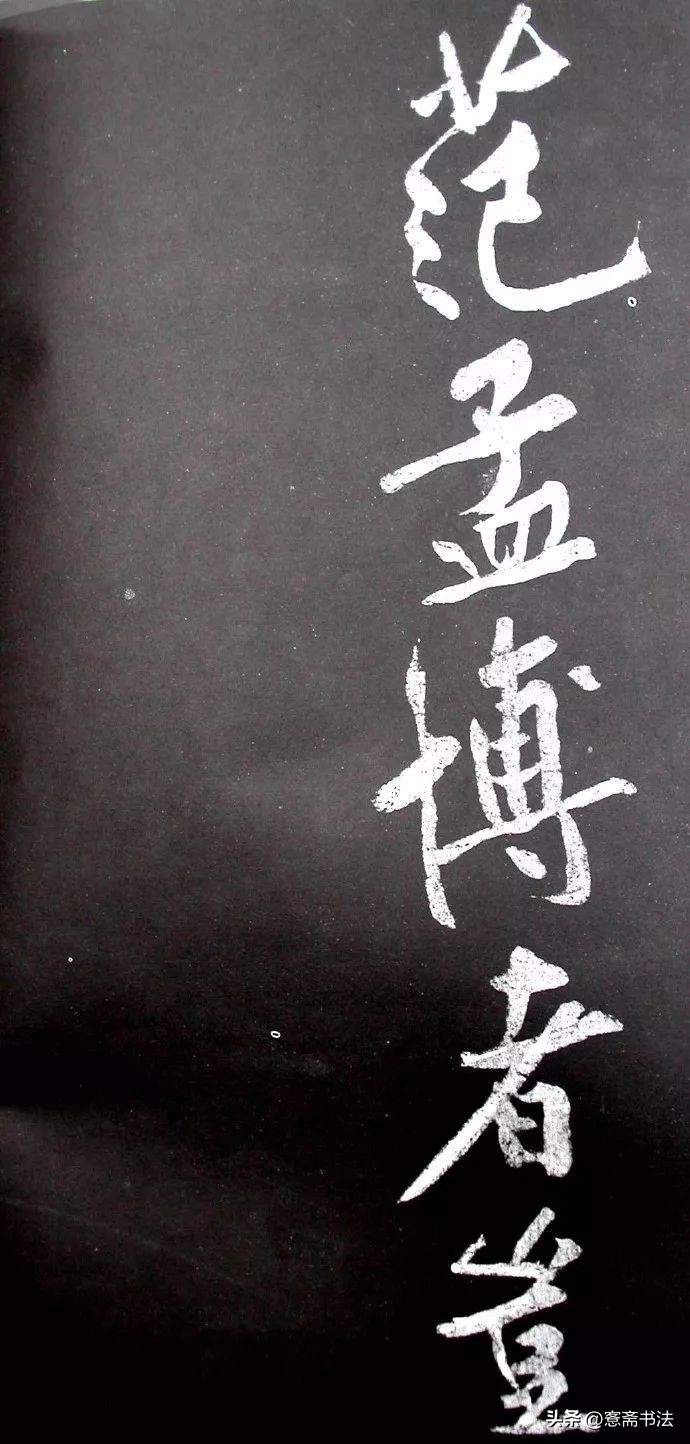 范孟博者豈
头条@惷斋书法